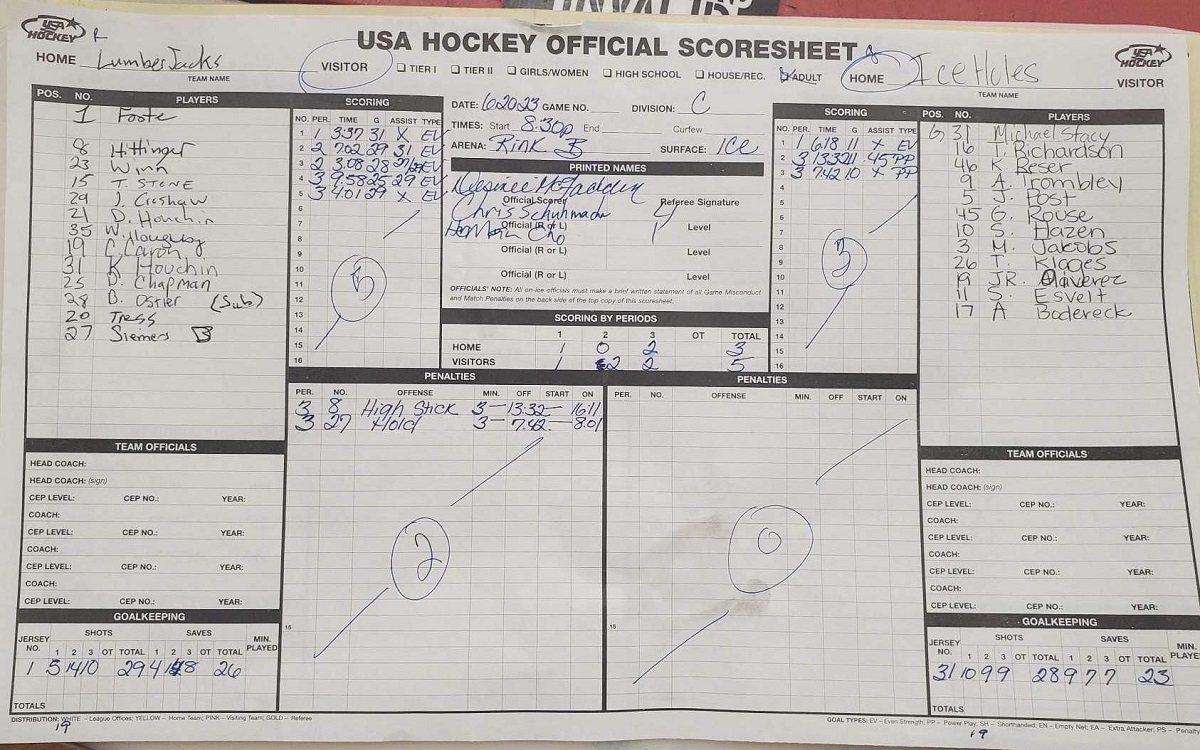 USA HOCKEY
USA HOCKEY OFFICIAL SCORESHEET
USA HOCKEY
HOME LumberJacks
TEAM NAME
VISITOR
TIER I TIER II GIRLS/WOMEN HIGH SCHOOL HOUSE/REC. ADULT
HOME IceHoles
TEAM NAME
VISITOR
POS. NO. PLAYERS
1 Foote
8 Hittinger
23 Winn
15 T. STONE
29 J. Creshaw
21 D. Houchin
35 Willoughby
19 C. Caron
31 K Houchin
25 D. Chapman
28 B. Ostler (Sub)
20 Tress
27 Siemers
SCORING
NO. PER. TIME G ASSIST TYPE
1 1 337 31 X EV
2 2 702 29 31 EV
3 2 3.08 28 EV
4 3 958 25 29 EV
5 3 4.01 29 X EV
6
7
8
9
10
11
12
13
14
15
16
5
DATE: 62023 GAME NO. DIVISION: C
TIMES: Start 8:30p End Curfew
ARENA: Rink B SURFACE: ICE
PRINTED NAMES
Official Scorer Referee Signature
Chris
Official (R or L) Level
Official (R or L) Level
Official (R or L) Level
OFFICIALS' NOTE: All on-ice officials must make a brief written statement of all Game Misconduct
and Match Penalties on the back side of the top copy of this scoresheet.
SCORING BY PERIODS
1 2 3 OT TOTAL
HOME 1 0 2 3
VISITORS 1 2 2 5
SCORING
NO. PER. TIME G ASSIST TYPE
1 1 618 11 X EV
2 3 1332 11 45 PP
3 3 742 10 X PP
4
5
6
7
8
9
10
11
12
13
14
15
16
3
POS. NO. PLAYERS
G 31 Michael Stacy
16 T. Richardson
46 K. Reser
9 A. Trombley
5 J. Post
45 G. Rouse
10 S. Hazen
3 M. Jakobs
26 T. Kigges
19 JR. Olaverez
11 S. Esvelt
17 A Bodereck
PENALTIES
PER. NO. OFFENSE MIN. OFF START ON
3 8 High Stick 3 — 13:32 — 1611
3 27 Hold 3 — 7:42 — 8:01
2
15
PENALTIES
PER. NO. OFFENSE MIN. OFF START ON
0
15
TEAM OFFICIALS
HEAD COACH:
HEAD COACH: (sign)
CEP LEVEL: CEP NO.: YEAR:
COACH:
CEP LEVEL: CEP NO.: YEAR:
COACH:
CEP LEVEL: CEP NO.: YEAR:
COACH:
CEP LEVEL: CEP NO.: YEAR:
GOALKEEPING
JERSEY NO. SHOTS SAVES MIN. PLAYED
1 2 3 OT TOTAL 1 2 3 OT TOTAL
1 5 14 10 29 4 8 26
TOTALS
TEAM OFFICIALS
HEAD COACH:
HEAD COACH: (sign)
CEP LEVEL: CEP NO.: YEAR:
COACH:
CEP LEVEL: CEP NO.: YEAR:
COACH:
CEP LEVEL: CEP NO.: YEAR:
COACH:
CEP LEVEL: CEP NO.: YEAR:
GOALKEEPING
JERSEY NO. SHOTS SAVES MIN. PLAYE
1 2 3 OT TOTAL 1 2 3 OT TOTAL
31 10 9 9 28 9 7 7 23
TOTALS
DISTRIBUTION: WHITE – League Offices; YELLOW – Home Team; PINK – Visiting Team; GOLD – Referee
GOAL TYPES: EV – Even Strength; PP – Power Play; SH – Shorthanded; EN – Empty Net; EA – Extra Attacker; PS – Penalty
19
19